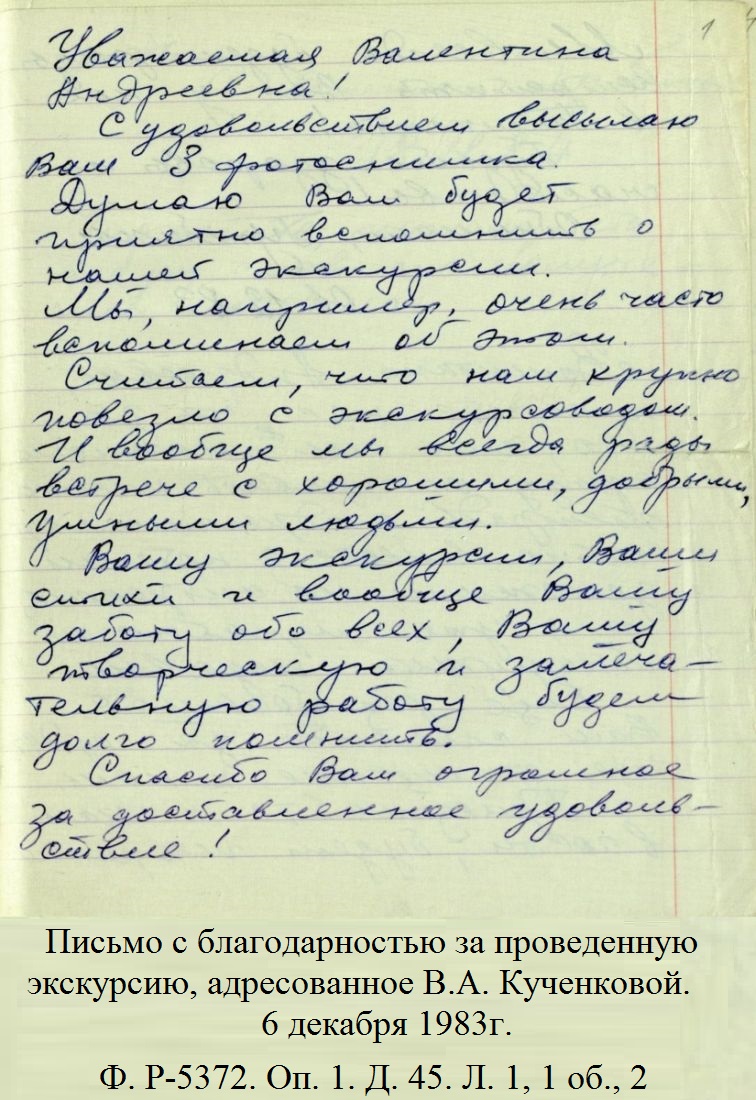 1
Уважаемая Валентина
Андреевна!
С удовольствием высылаю
Вам 3 фотоснимка.
Думаю Вам будет
приятно вспомнить о
нашей экскурсии.
Мы, например, очень часто
вспоминаем об этом.
Считаем, что нам крупно
повезло с экскурсоводом.
И вообще мы всегда рады
встрече с хорошими, добрыми,
умными людьми.
Вашу экскурсии, Ваши
стихи и вообще Вашу
заботу обо всех, Вашу
творческую и замеча-
тельную работу будем
долго помнить.
Спасибо Вам огромное
за доставленное удоволь-
ствие!
Письмо с благодарностью за проведенную
экскурсию, адресованное В.А. Кученковой.
6 декабря 1983г.
Ф. Р-5372. Оп. 1. Д. 45. Л. 1, 1 об., 2